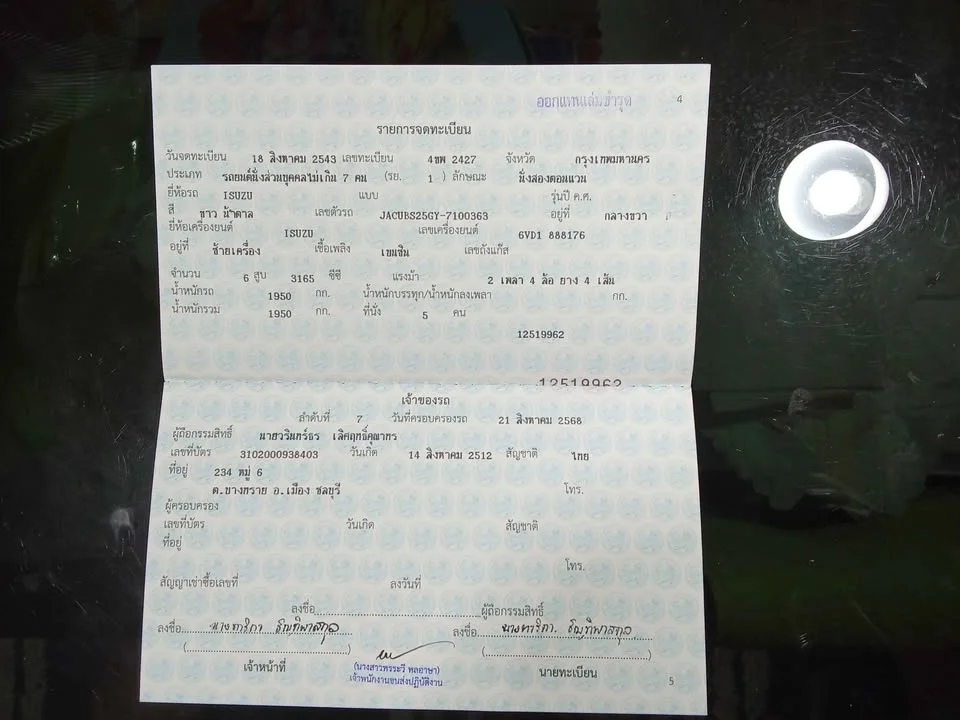 ออกแทนเล่มชำรุด 4
รายการจดทะเบียน
วันจดทะเบียน 18 สิงหาคม 2543 เลขทะเบียน 4ขพ 2427 จังหวัด กรุงเทพมหานคร
ประเภท รถยนต์นั่งส่วนบุคคลไม่เกิน 7 คน (รย. 1) ลักษณะ นั่งสองตอนแวน
ยี่ห้อรถ ISUZU แบบ รุ่นปี ค.ศ.
สี ขาว น้ำตาล เลขตัวรถ JACUBS25GY-7100363 อยู่ที่ กลางขวา
ยี่ห้อเครื่องยนต์ ISUZU เลขเครื่องยนต์ 6VD1 888176
อยู่ที่ ซ้ายเครื่อง เชื้อเพลิง เบนซิน เลขถังแก๊ส
จำนวน 6 สูบ 3165 ซีซี แรงม้า 2 เพลา 4 ล้อ ยาง 4 เส้น
น้ำหนักรถ 1950 กก. น้ำหนักบรรทุก/น้ำหนักลงเพลา กก.
น้ำหนักรวม 1950 กก. ที่นั่ง 5 คน
12519962
12519962
เจ้าของรถ
ลำดับที่ 7 วันที่ครอบครองรถ 21 สิงหาคม 2568
ผู้ถือกรรมสิทธิ์ นายวรินทร์ธร เลิศฤทธิ์คุณากร
เลขที่บัตร 3102000938403 วันเกิด 14 สิงหาคม 2512 สัญชาติ ไทย
ที่อยู่ 234 หมู่ 6
ต.บางทราย อ.เมือง ชลบุรี โทร.
ผู้ครอบครอง
เลขที่บัตร วันเกิด สัญชาติ
ที่อยู่
โทร.
สัญญาเช่าซื้อเลขที่ ลงวันที่
ลงชื่อ ผู้ถือกรรมสิทธิ์
ลงชื่อ นางทาริกา ลงชื่อ นางทาริกา
เจ้าหน้าที่ (นางสาวพรระวี พลอาษา) นายทะเบียน
เจ้าพนักงานขนส่งปฏิบัติงาน
5